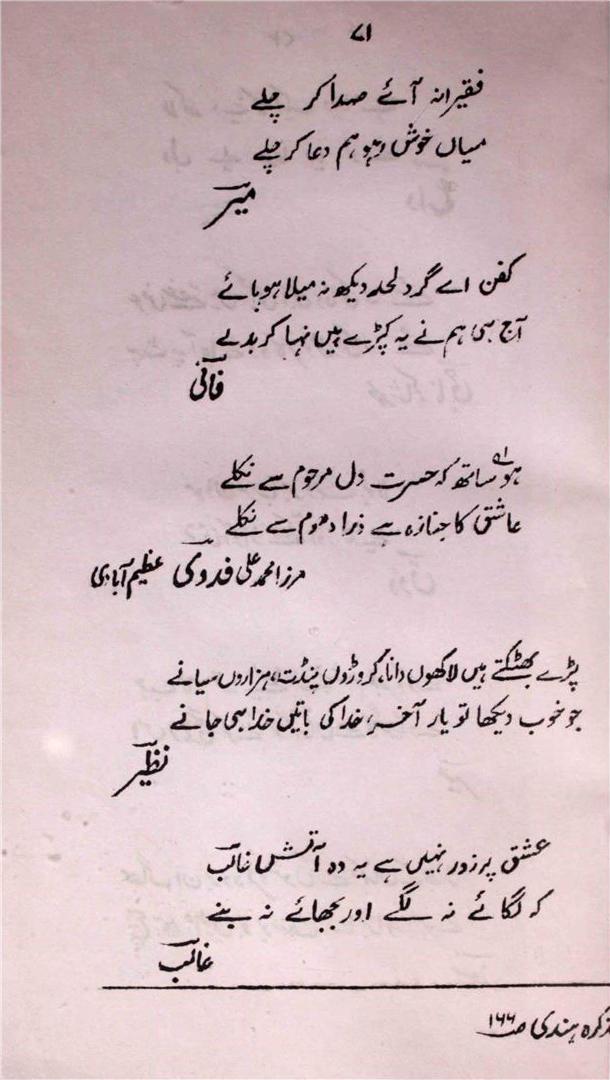 ۷۱
فقیرانہ آئے صدا کر چلے
میاں خوش رہو ہم دعا کر چلے
میر
کفن اے گرد لحد دیکھ نہ میلا ہو جائے
آج ہی ہم نے یہ کپڑے ہیں نہا کر بدلے
فانی
ہو ساتھ کہ حسرت دل مرحوم سے نکلے
عاشق کا جنازہ ہے ذرا دھوم سے نکلے
مرزا محمد علی فدوی عظیم آبادی
پڑے بھٹکتے ہیں لاکھوں دانا، کروڑوں پنڈت، ہزاروں سیانے
جو خوب دیکھا تو یار آخر، خدا کی باتیں خدا ہی جانے
نظیر
عشق پر زور نہیں ہے یہ وہ آتش غالب
کہ لگائے نہ لگے اور بجھائے نہ بنے
غالب
تذکرہ ہندی ص ۱۶۶